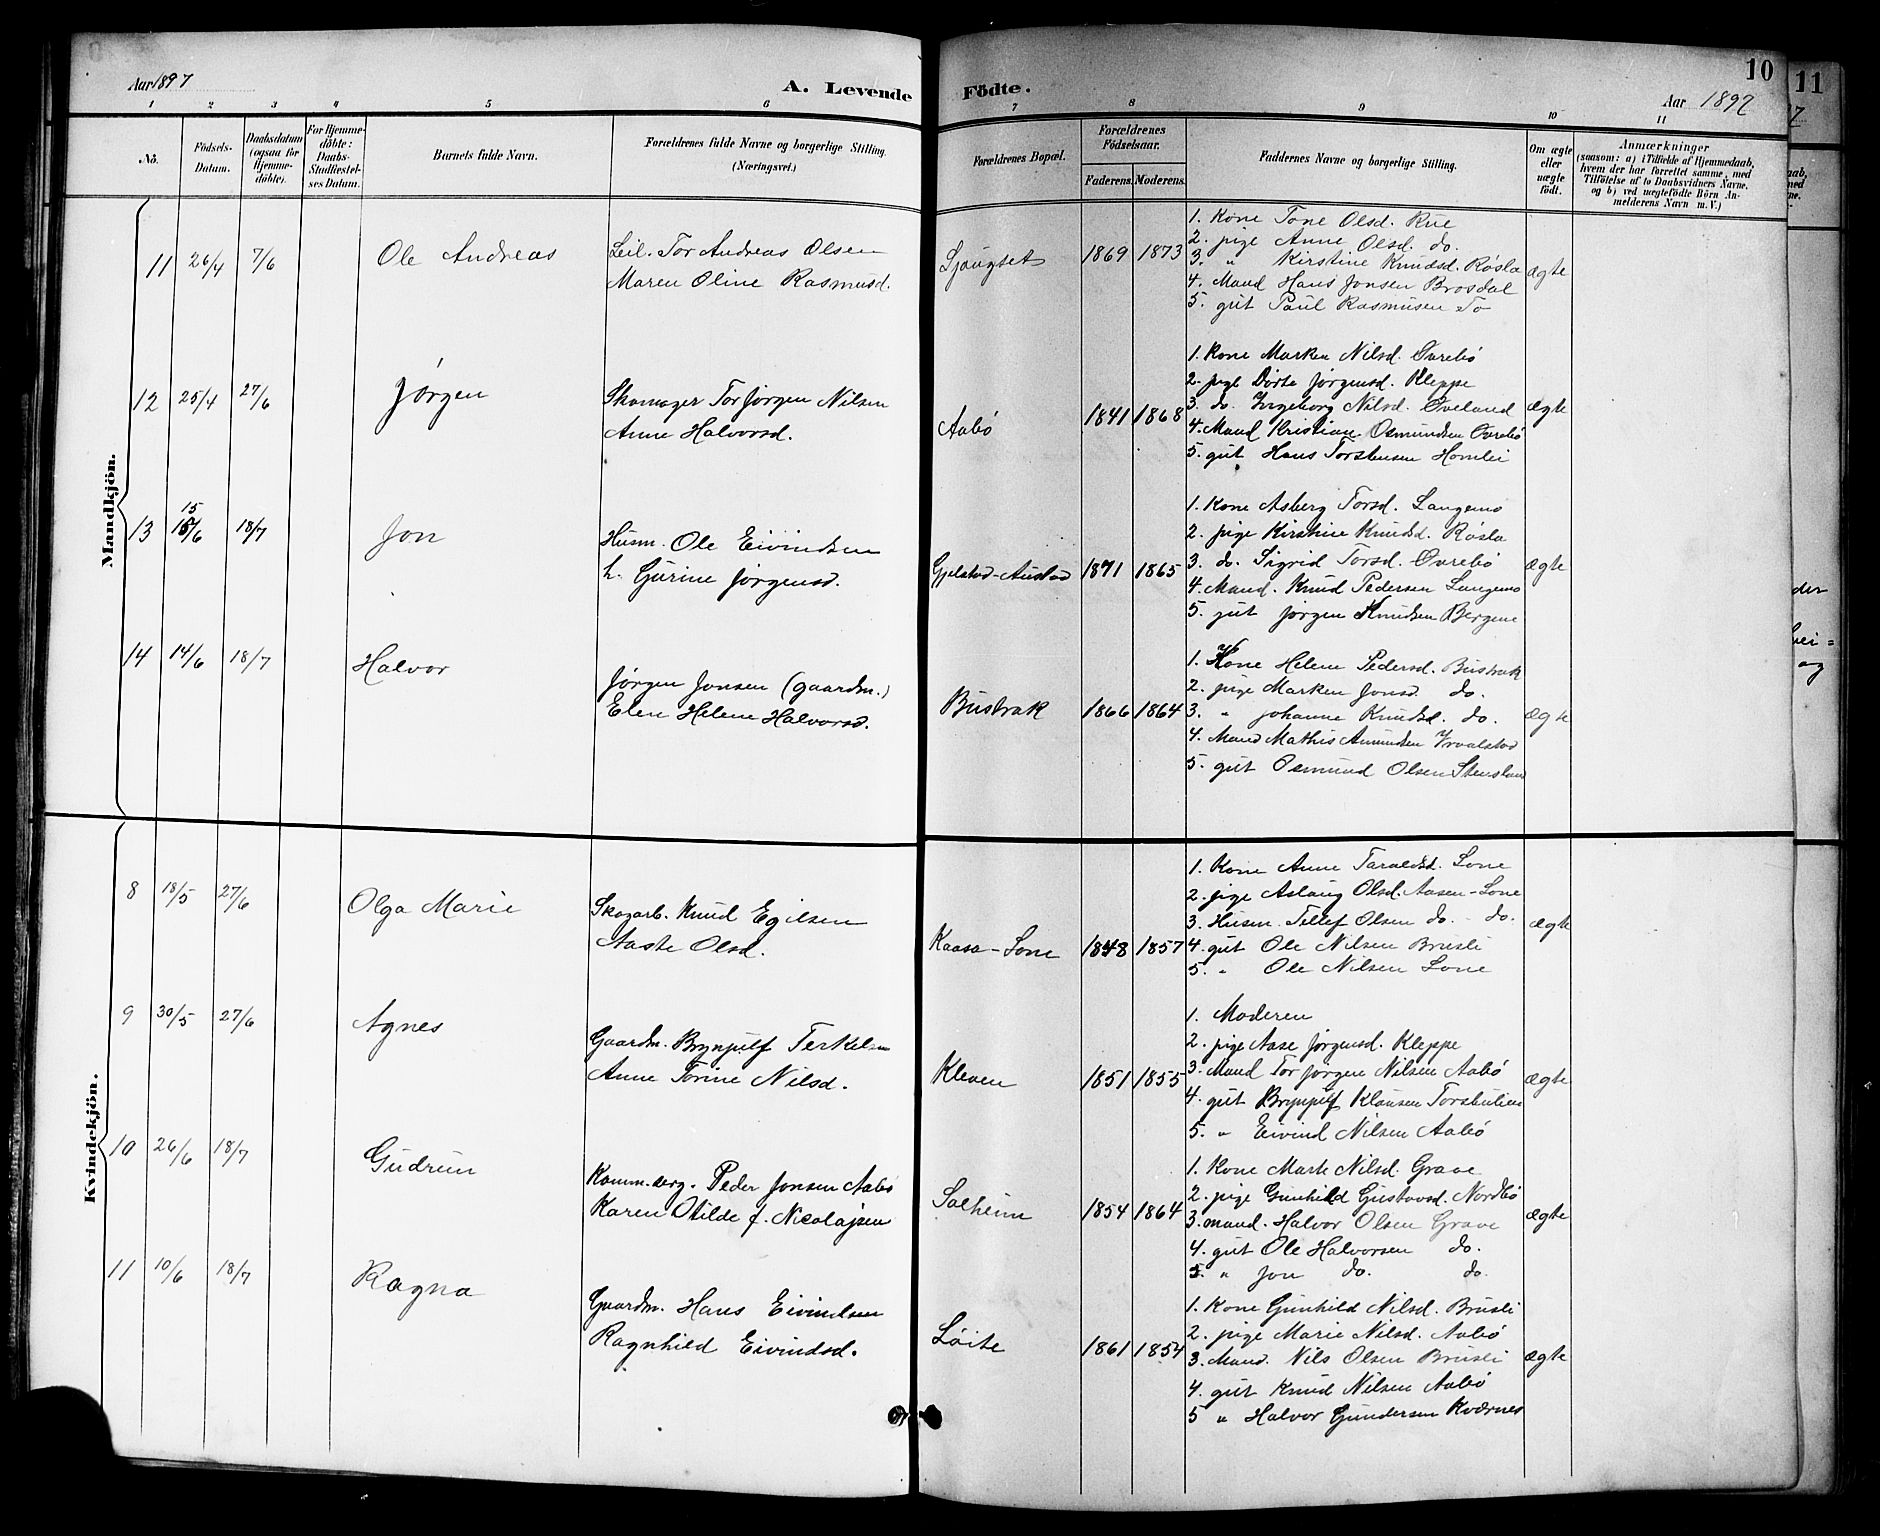 Aar 1897
A. Levende Födte.
10
Aar 1897
11
1 2 3 4 5 6 7 8 9 10 11
No.
Födsels-Datum.
Daabsdatum (ogsaa for Hjemme-döbte).
For Hjemme-döbte: Daabs-Stadfæstel-ses Datum.
Barnets fulde Navn.
Forældrenes fulde Navne og borgerlige Stilling. (Næringsvei.)
Forældrenes Bopæl.
Forældrenes Födselsaar.
Faderens. Moderens.
Faddernes Navne og borgerlige Stilling.
Om ægte eller uægte födt.
Anmærkninger
(saasom: a) i Tilfælde af Hjemmedaab,
hvem der har forrettet samme, med
Tilföielse af to Daabsvidners Navne,
og b) ved uægtefödte Börn An-
melderens Navn m. V.)
Mandkjön.
11 26/4 7/6 Ole Andreas
Leil. Tor Andreas Olsen
Maren Oline Rasmusd.
1869 1873
1. Kone Tone Olsd. Rue
2. pige Anne Olsd. do.
3. " Kirstine Knudsd. Røsla
4. Mand Hans Jonsen Brosdal
5. gut Paul Rasmusen To
ægte
12 25/4 27/6 Jørgen
Skomager Tor Jørgen Nilsen
Anne Halvorsd.
Aabø
1841 1868
1. Kone Marken Nilsd. Øvrebø
2. pige Dorte Jørgensd. Kleppe
3. do. Ingeborg Nilsd. Øveland
4. Mand Kristian Osmundsen Øvrebø
5. gut Hans Torstensen Homlei
ægte
13 15 15/6 18/7 Jon
Husm. Ole Eivindsen
h. Gurine Jørgensd.
Gjelstad-Austad
1871 1865
1. Kone Asberg Torsd. Langemo
2. pige Kirstine Knudsd. Røsla
3. do. Sigrid Torsd. Øvrebø
4. Mand. Knud Pedersen Langemo
5. gut Jørgen Knudsen Bergene
ægte
14 14/6 18/7 Halvor
Jørgen Jonsen (gaardm.)
Elen Helene Halvorsd.
Bustrak
1866 1864
1. Kone Helene Pedersd. Bustrak
2. pige Marken Jonsd. do.
3. " Johanne Knudsd. do.
4. Mand Mathis Amundsen Vraalstad
5. gut Osmund Olsen Stensland
ægte
Kvindekjön.
8 18/5 27/6 Olga Marie
Skogarb. Knud Egilsen
Aaste Olsd.
Kaasa-Lone
1848 1857
1. Kone Anne Taraldsd. Lone
2. pige Aslaug Olsd. Aasen-Lone
3. Husm. Tellef Olsen do. - do.
4. gut Ole Nilsen Brusli
5. " Ole Nilsen Lone
ægte
9 30/5 27/6 Agnes
Gaardm. Brynjulf Terkelsen
Anne Torine Nilsd.
Kleven
1851 1855
1. Moderen
2. pige Aase Jørgensd. Kleppe
3. Mand Tor Jørgen Nilsen Aabø
4. gut Brynjulf Klausen
5. " Eivind Nilsen Aabø
ægte
10 26/6 18/7 Gudrun
Peder Jonsen Aabø
Karen Otilde f. Nicolajsen
Solheim
1854 1864
1. Kone Marte Nilsd. Grave
2. pige Gunhild Gustavsd. Nordbø
3. mand. Halvor Olsen Grave
4. gut Ole Halvorsen do.
5. " Jon do. do.
ægte
11 10/6 18/7 Ragna
Gaardm. Hans Eivindsen
Ragnhild Eivindsd.
Løite
1861 1854
1. Kone Gunhild Nilsd. Brusli
2. pige Marie Nilsd. Aabø
3. Mand. Nils Olsen Brusli
4. gut Knud Nilsen Aabø
5 " Halvor Gundersen Kværnes
ægte